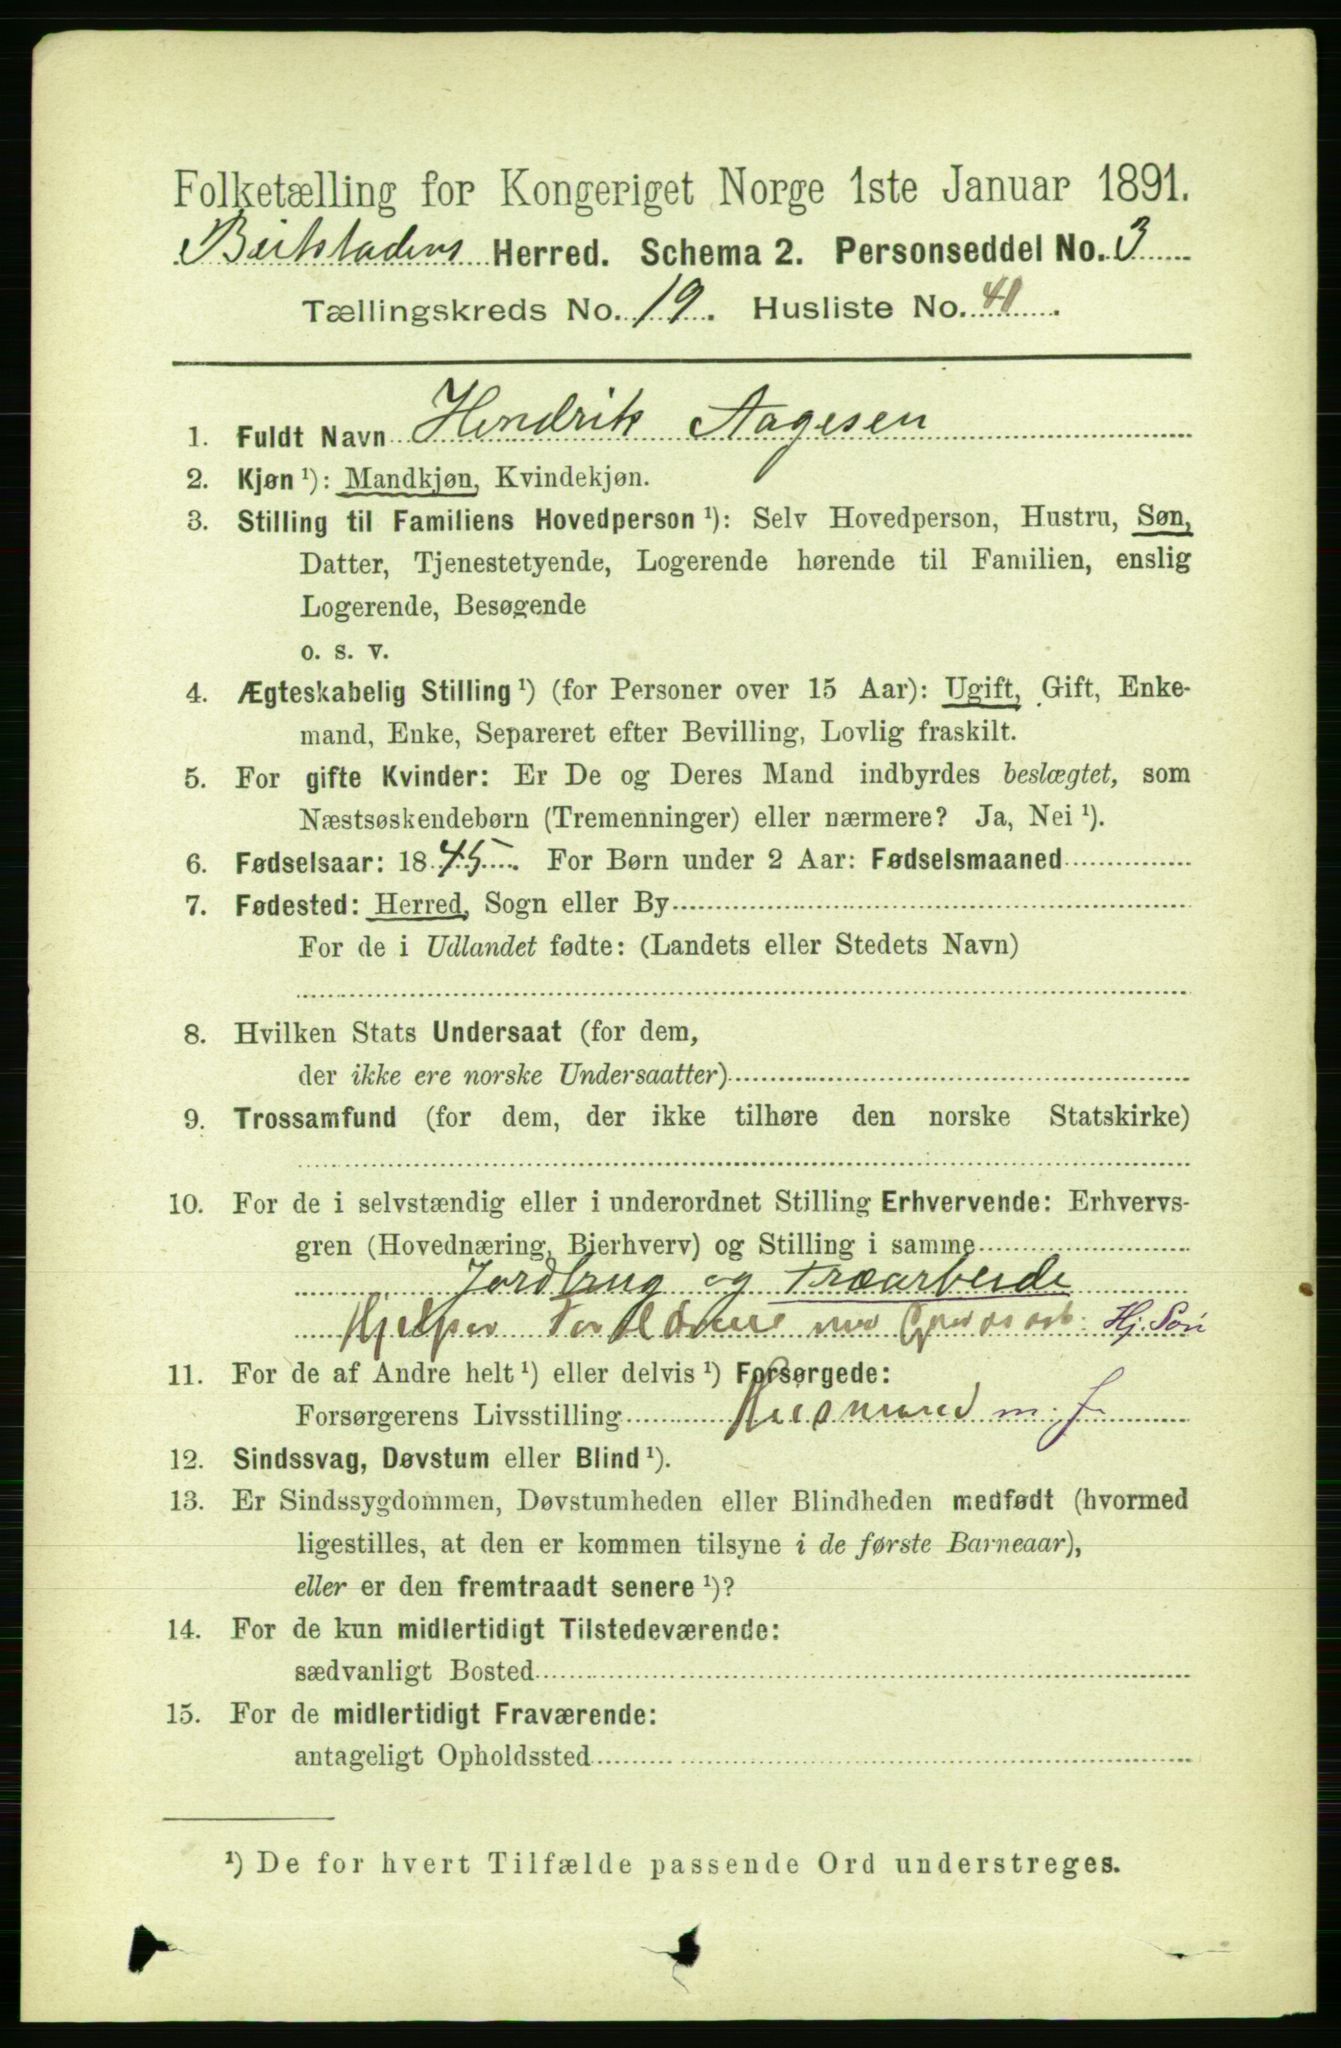 Folketælling for Kongeriget Norge 1ste Januar 1891.
Beitstadens Herred. Schema 2. Personseddel No. 3
Tællingskreds No. 19. Husliste No. 41.
1. Fuldt Navn Hendrik Aagesen
2. Kjøn ¹): Mandkjøn, Kvindekjøn.
3. Stilling til Familiens Hovedperson ¹): Selv Hovedperson, Hustru, Søn,
Datter, Tjenestetyende, Logerende hørende til Familien, enslig
Logerende, Besøgende
o. s. v.
4. Ægteskabelig Stilling ¹) (for Personer over 15 Aar): Ugift, Gift, Enke-
mand, Enke, Separeret efter Bevilling, Lovlig fraskilt.
5. For gifte Kvinder: Er De og Deres Mand indbyrdes beslægtet, som
Næstsøskendebørn (Tremenninger) eller nærmere? Ja, Nei ¹).
6. Fødselsaar: 1845. For Børn under 2 Aar: Fødselsmaaned
7. Fødested: Herred, Sogn eller By
For de i Udlandet fødte: (Landets eller Stedets Navn)
8. Hvilken Stats Undersaat (for dem,
der ikke ere norske Undersaatter)
9. Trossamfund (for dem, der ikke tilhøre den norske Statskirke)
10. For de i selvstændig eller i underordnet Stilling Erhvervende: Erhvervs-
gren (Hovednæring, Bierhverv) og Stilling i samme
Jordbrug og Træarbeide
Hjelper Forældrene med Hj. Søn
11. For de af Andre helt ¹) eller delvis ¹) Forsørgede:
Forsørgerens Livsstilling Husmand m. J.
12. Sindssvag, Døvstum eller Blind ¹).
13. Er Sindssygdommen, Døvstumheden eller Blindheden medfødt (hvormed
ligestilles, at den er kommen tilsyne i de første Barneaar),
eller er den fremtraadt senere ¹)?
14. For de kun midlertidigt Tilstedeværende:
sædvanligt Bosted
15. For de midlertidigt Fraværende:
antageligt Opholdssted
¹) De for hvert Tilfælde passende Ord understreges.